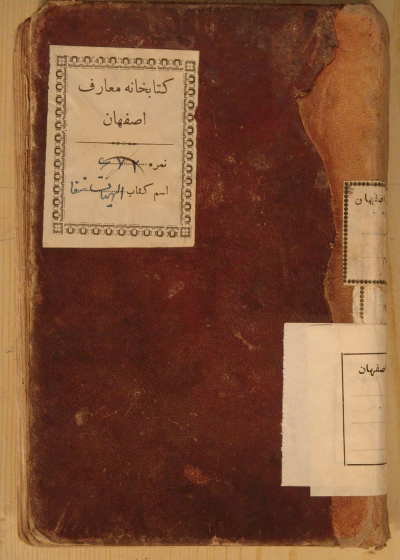 کتابخانه معارف
اصفهان
نمره
اسم کتاب
اصفهان
صفهان